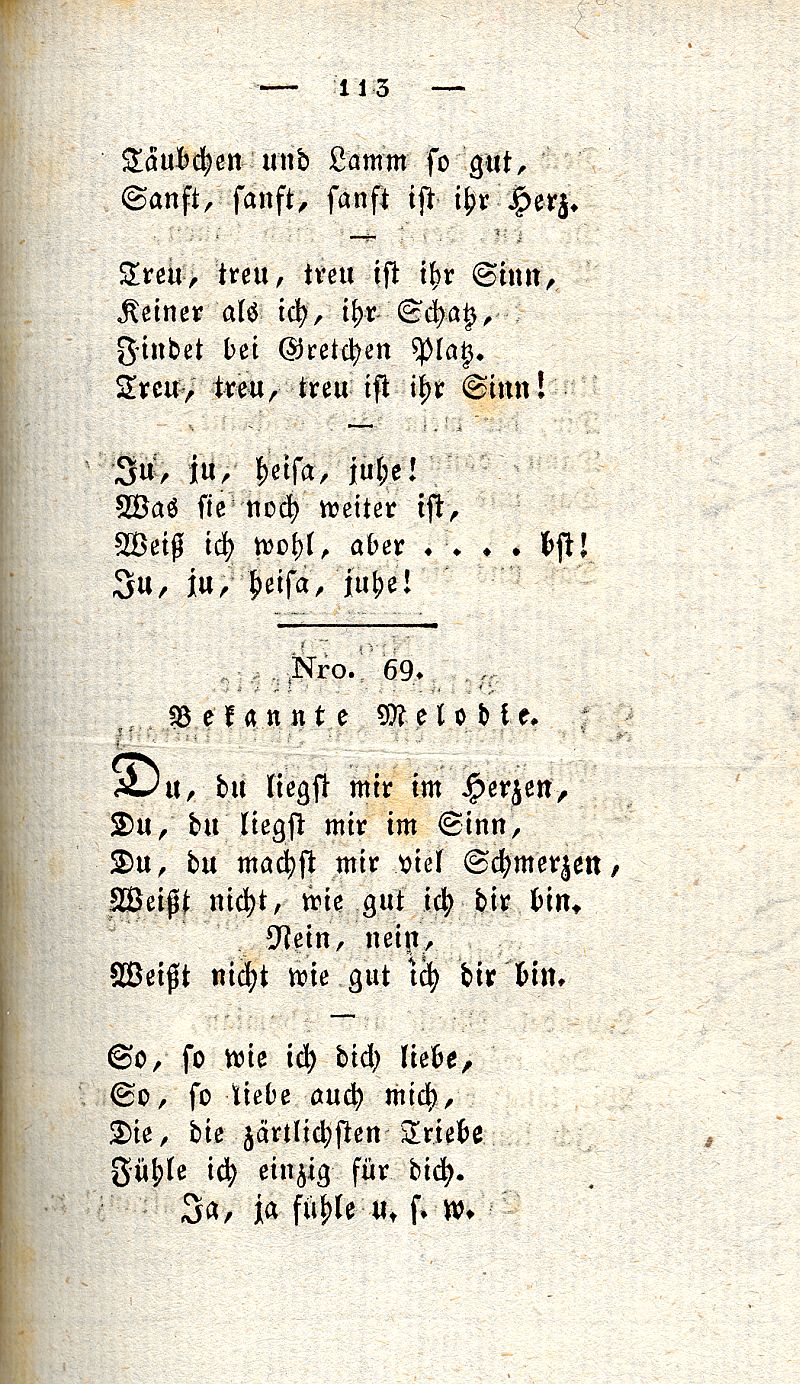 — 113 —
Täubchen und Lamm so gut,
Sanft, sanft, sanft ist ihr Herz.
—
Treu, treu, treu ist ihr Sinn,
Keiner als ich, ihr Schatz,
Findet bei Gretchen Platz.
Treu, treu, treu ist ihr Sinn!
—
Ju, ju, heisa, juhe!
Was sie noch weiter ist,
Weiß ich wohl, aber . . . . bst!
Ju, ju, heisa, juhe!
Nro. 69.
Bekannte Melodie.
Du, du liegst mir im Herzen,
Du, du liegst mir im Sinn,
Du, du machst mir viel Schmerzen,
Weißt nicht, wie gut ich dir bin.
Nein, nein,
Weißt nicht wie gut ich dir bin.
—
So, so wie ich dich liebe,
So, so liebe auch mich,
Die, die zärtlichsten Triebe
Fühle ich einzig für dich.
Ja, ja fühle u. s. w.